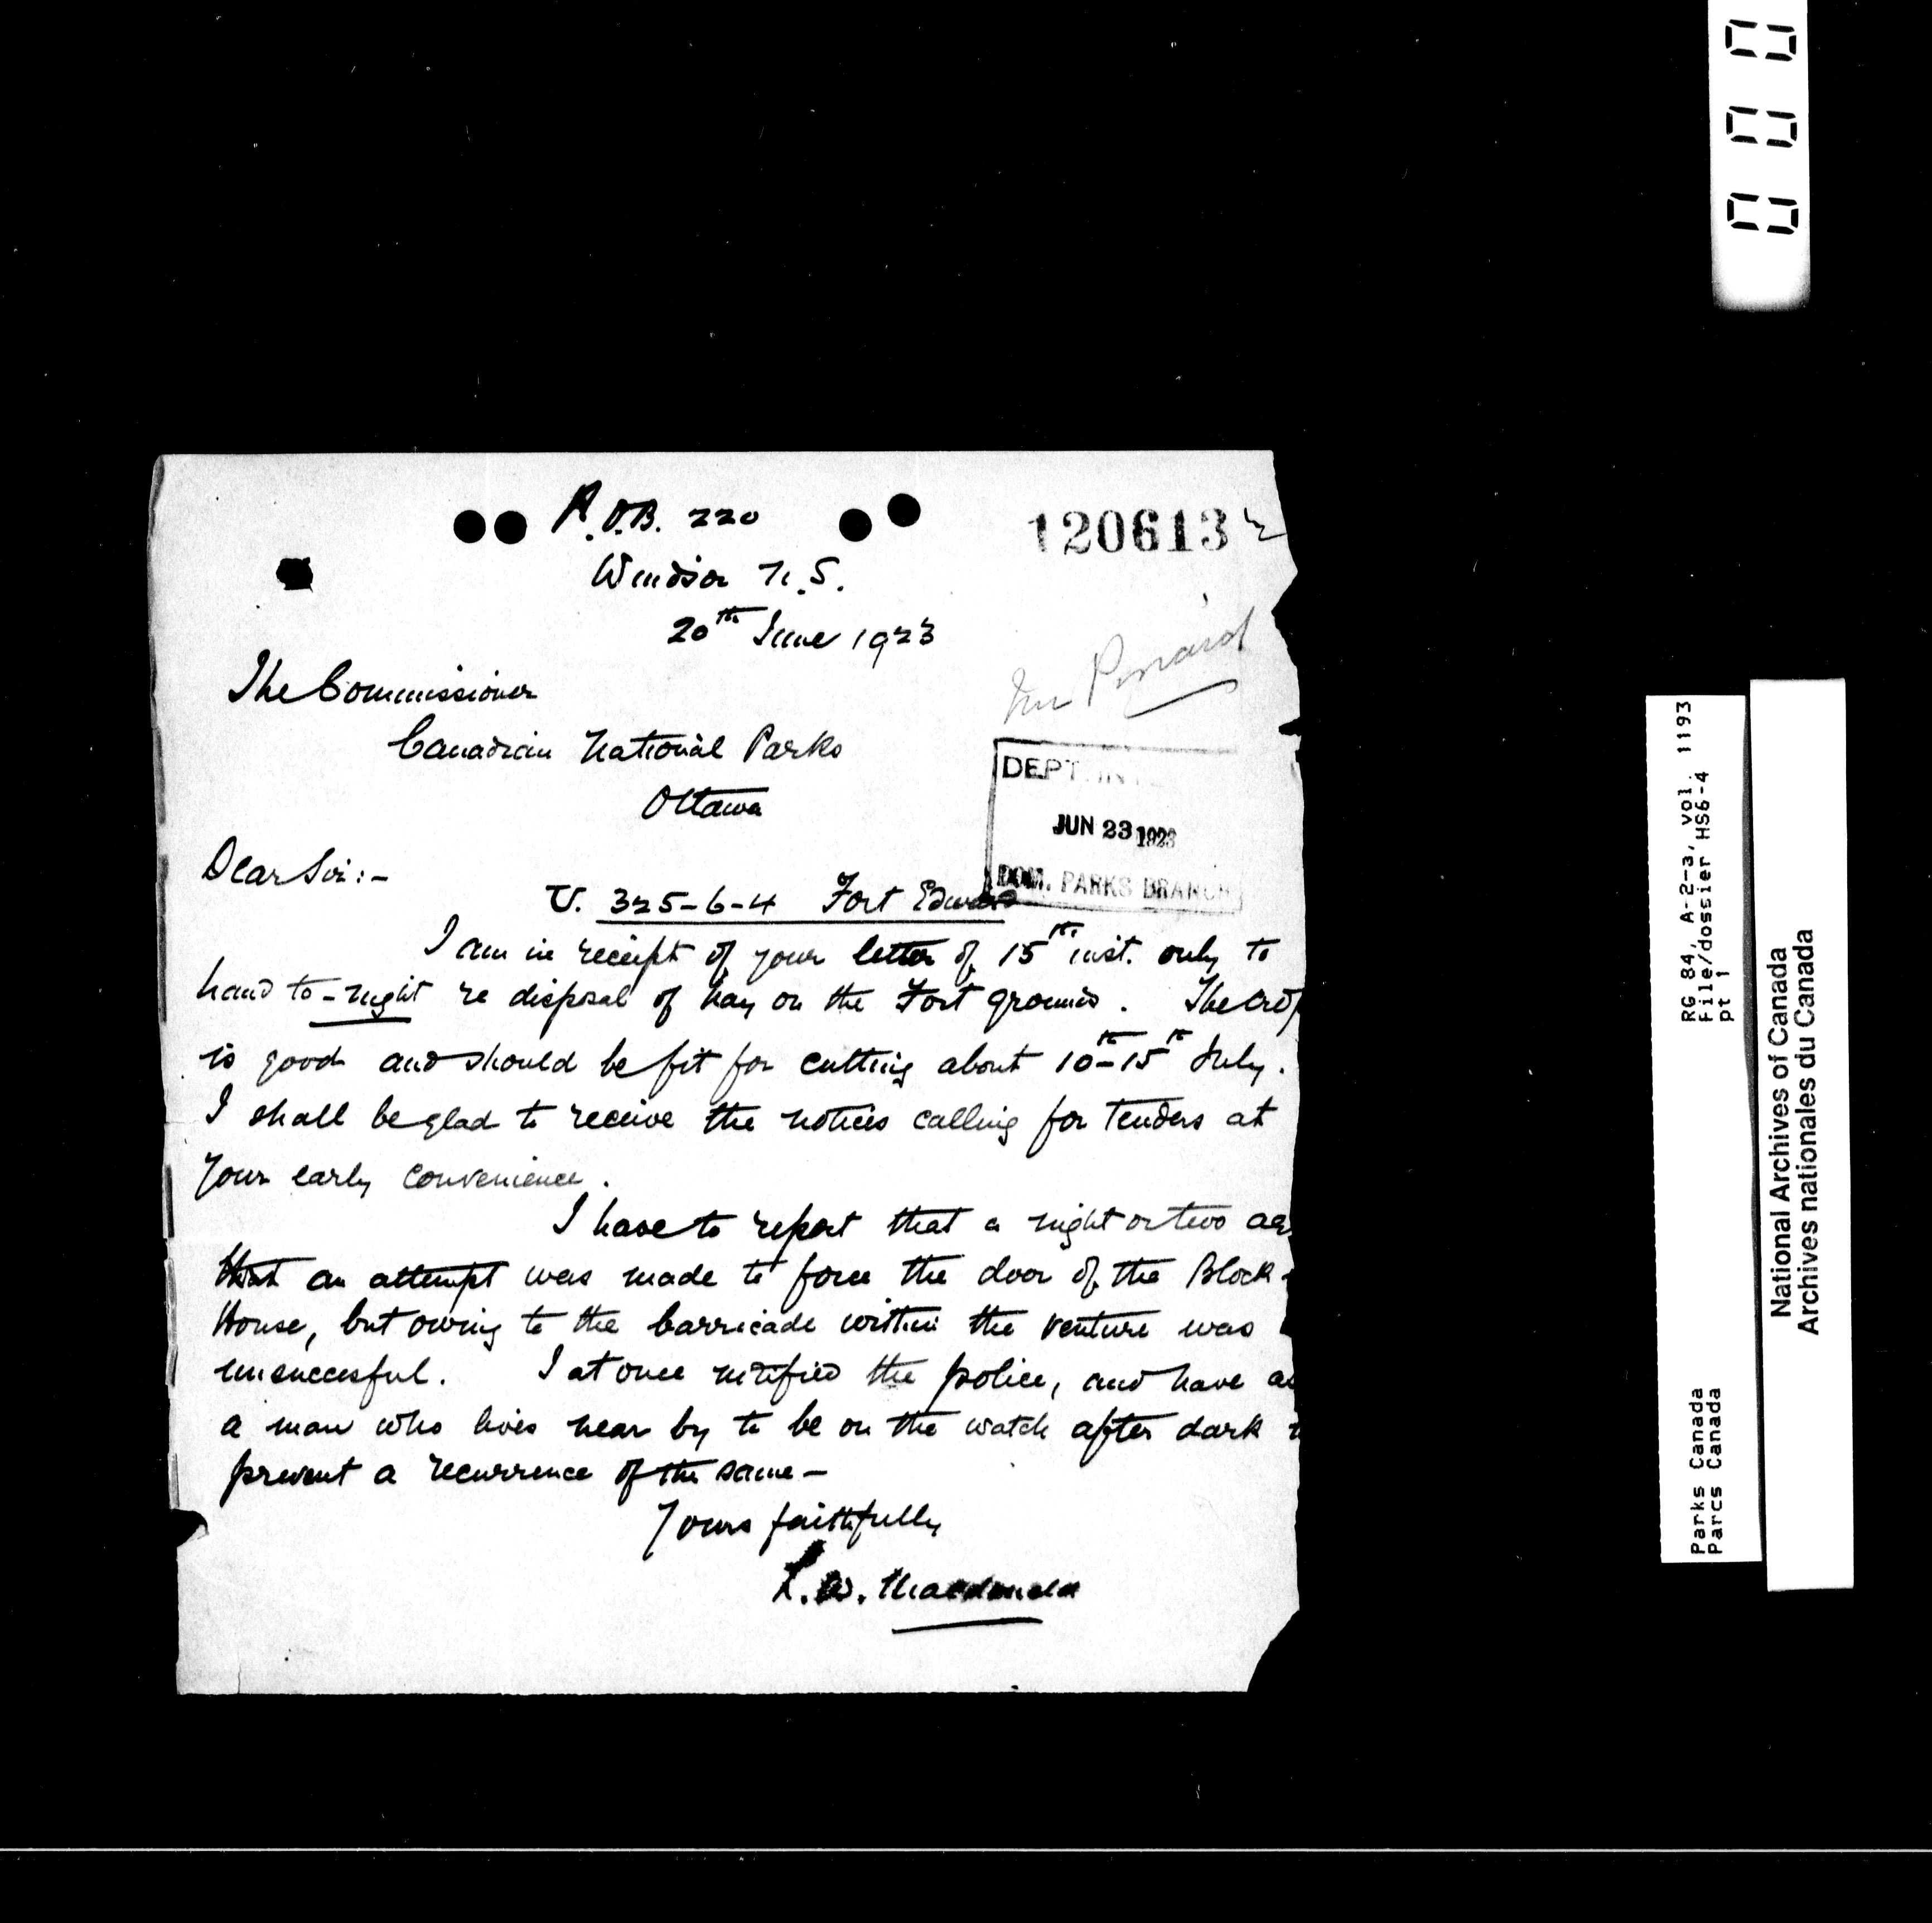 P.O.B. 220
Windsor N.S.
20th June 1923
120613
The Commissioner
Canadian National Parks
Ottawa
DEPT. IN
JUN 23 1923
DOM. PARKS BRANCH
Dear Sir:-
U. 325-6-4 Fort Edward
I am in receipt of your letter of 15th inst. only to
hand to-night re disposal of hay on the Fort grounds. The crop
is good and should be fit for cutting about 10th-15th July.
I shall be glad to receive the notices calling for tenders at
your early convenience.
I have to report that a night or two ag
that an attempt was made to force the door of the Block-
House, but owing to the barricade within the venture was
unsuccesful. I at once notified the police, and have as
a man who lives near by to be on the watch after dark
prevent a recurrence of the same-
Yours faithfully
L.W. Macdonald
RG 84, A-2-a, vol. 1193
File/dossier HS6-4
pt 1
Parks Canada
Parcs Canada
National Archives of Canada
Archives nationales du Canada